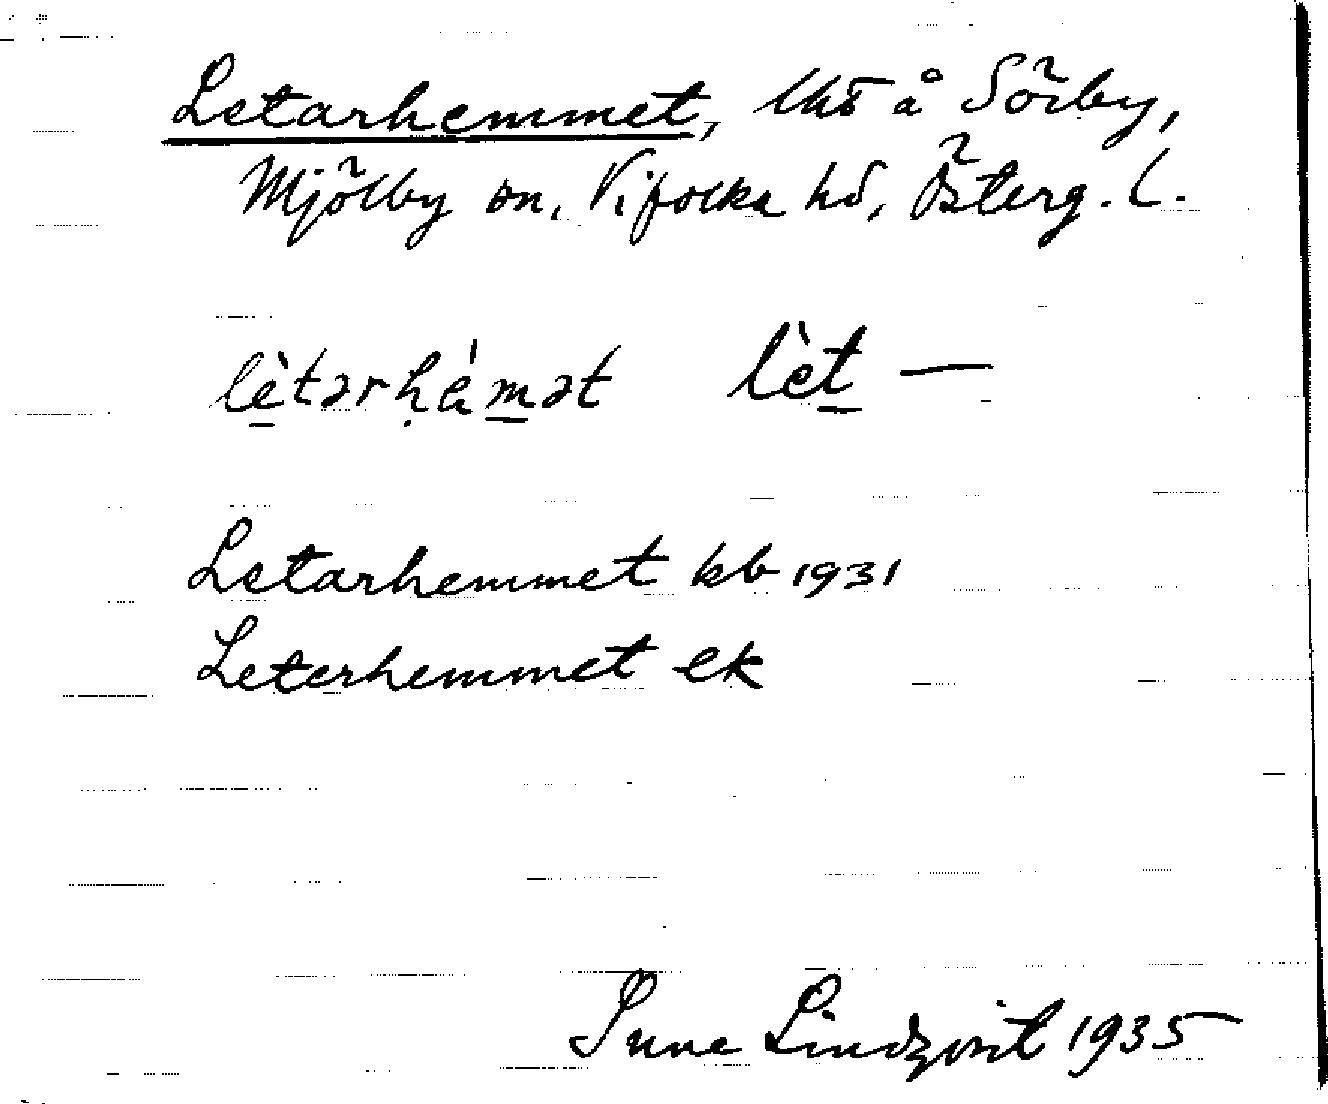 Letarhemmet, lht å Sörby,
Mjölby sn, Vifolka hd, Österg. l.
lètərhémət lèt —
Letarhemmet kb 1931
Leterhemmet ek
Sune Lindqvist 1935